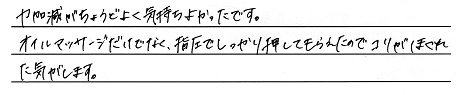 力加減がちょうどよく気持ちよかったです。
オイルマッサージだけでなく、指圧でしっかり押してもらえたのでコリがほぐれ
た気がします。